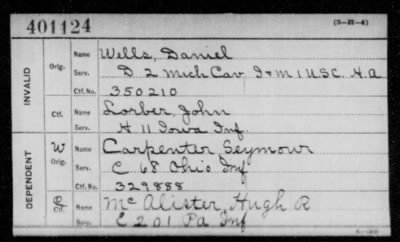 401124
(3-H-4)
INVALID
Orig. Name Wells, Daniel
Serv. D. 2 Mich Cav & M 1 U.S.C. H.A
Ctf. No. 350210
Ctf. Name Lorber, John
Serv. H 11 Iowa Inf.
DEPENDENT
W Orig. Name Carpenter Seymour
Serv. C 68 Ohio Inf
Ctf. No. 329888
Ctf. Name Mc Alister, Hugh R
Serv. E 201 Pa Inf